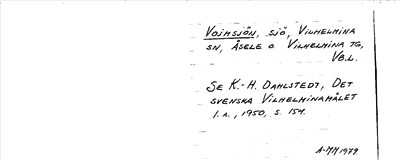 VOJMSJÖN, SJÖ, VILHELMINA
SN, ÅSELE O VILHELMINA TG,
VB.L.
SE K.-H. DAHLSTEDT, DET
SVENSKA VILHELMINAMÅLET
1.A., 1950, S. 154.
A-MM 1979